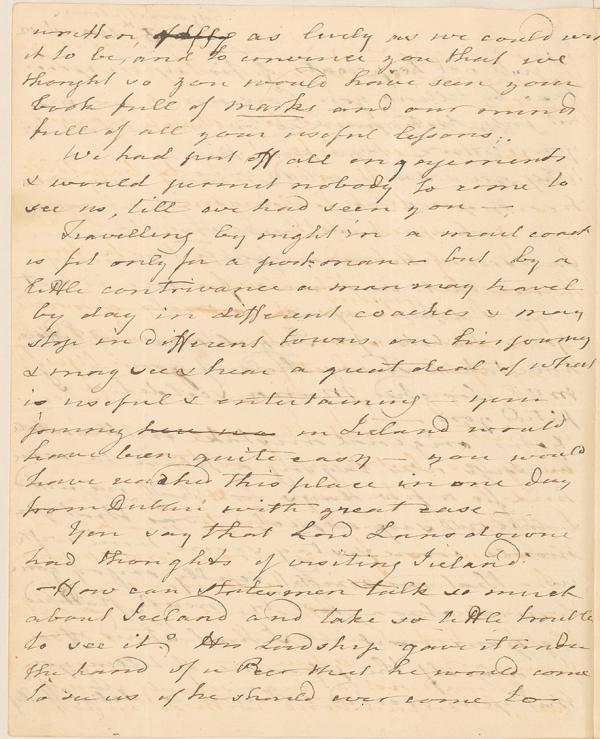 written as lively as we could wish
it to be, and to convince you that we
thought so you would have seen your
book full of marks and our minds
full of all your useful lessons;.
We had put off all engagements
& would permit nobody to come to
see us, till we had seen you —
Travelling by night in a mail coach
is fit only for a post-man — but by a
little contrivance a man may travel
by day in different coaches & may
stop in different towns on his journey
& may see & hear a great deal of what
is useful & entertaining — your
journey in Ireland would
have been quite easy — you would
have reached this place in one day
from Dublin with great ease —
You say that Lord Lansdowne
had thoughts of visiting Ireland.
— How can statesmen talk so much
about Ireland and take so little trouble
to see it? His Lordship gave it under
the hand of a Peer that he would come
to see us if he should ever come to